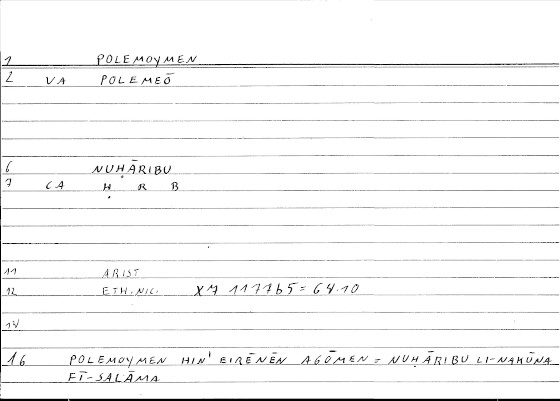 1 POLEMOYMEN
2 VA POLEMEŌ
6 NUḤĀRIBU
7 CA Ḥ R B
11 ARIST
12 ETH.NIC. X7 1177b5 = 64.10
14
16 POLEMOYMEN HIN' EIRĒNĒN AGŌMEN = NUḤĀRIBU LI-NAKŪNA
FĪ-SALĀMA